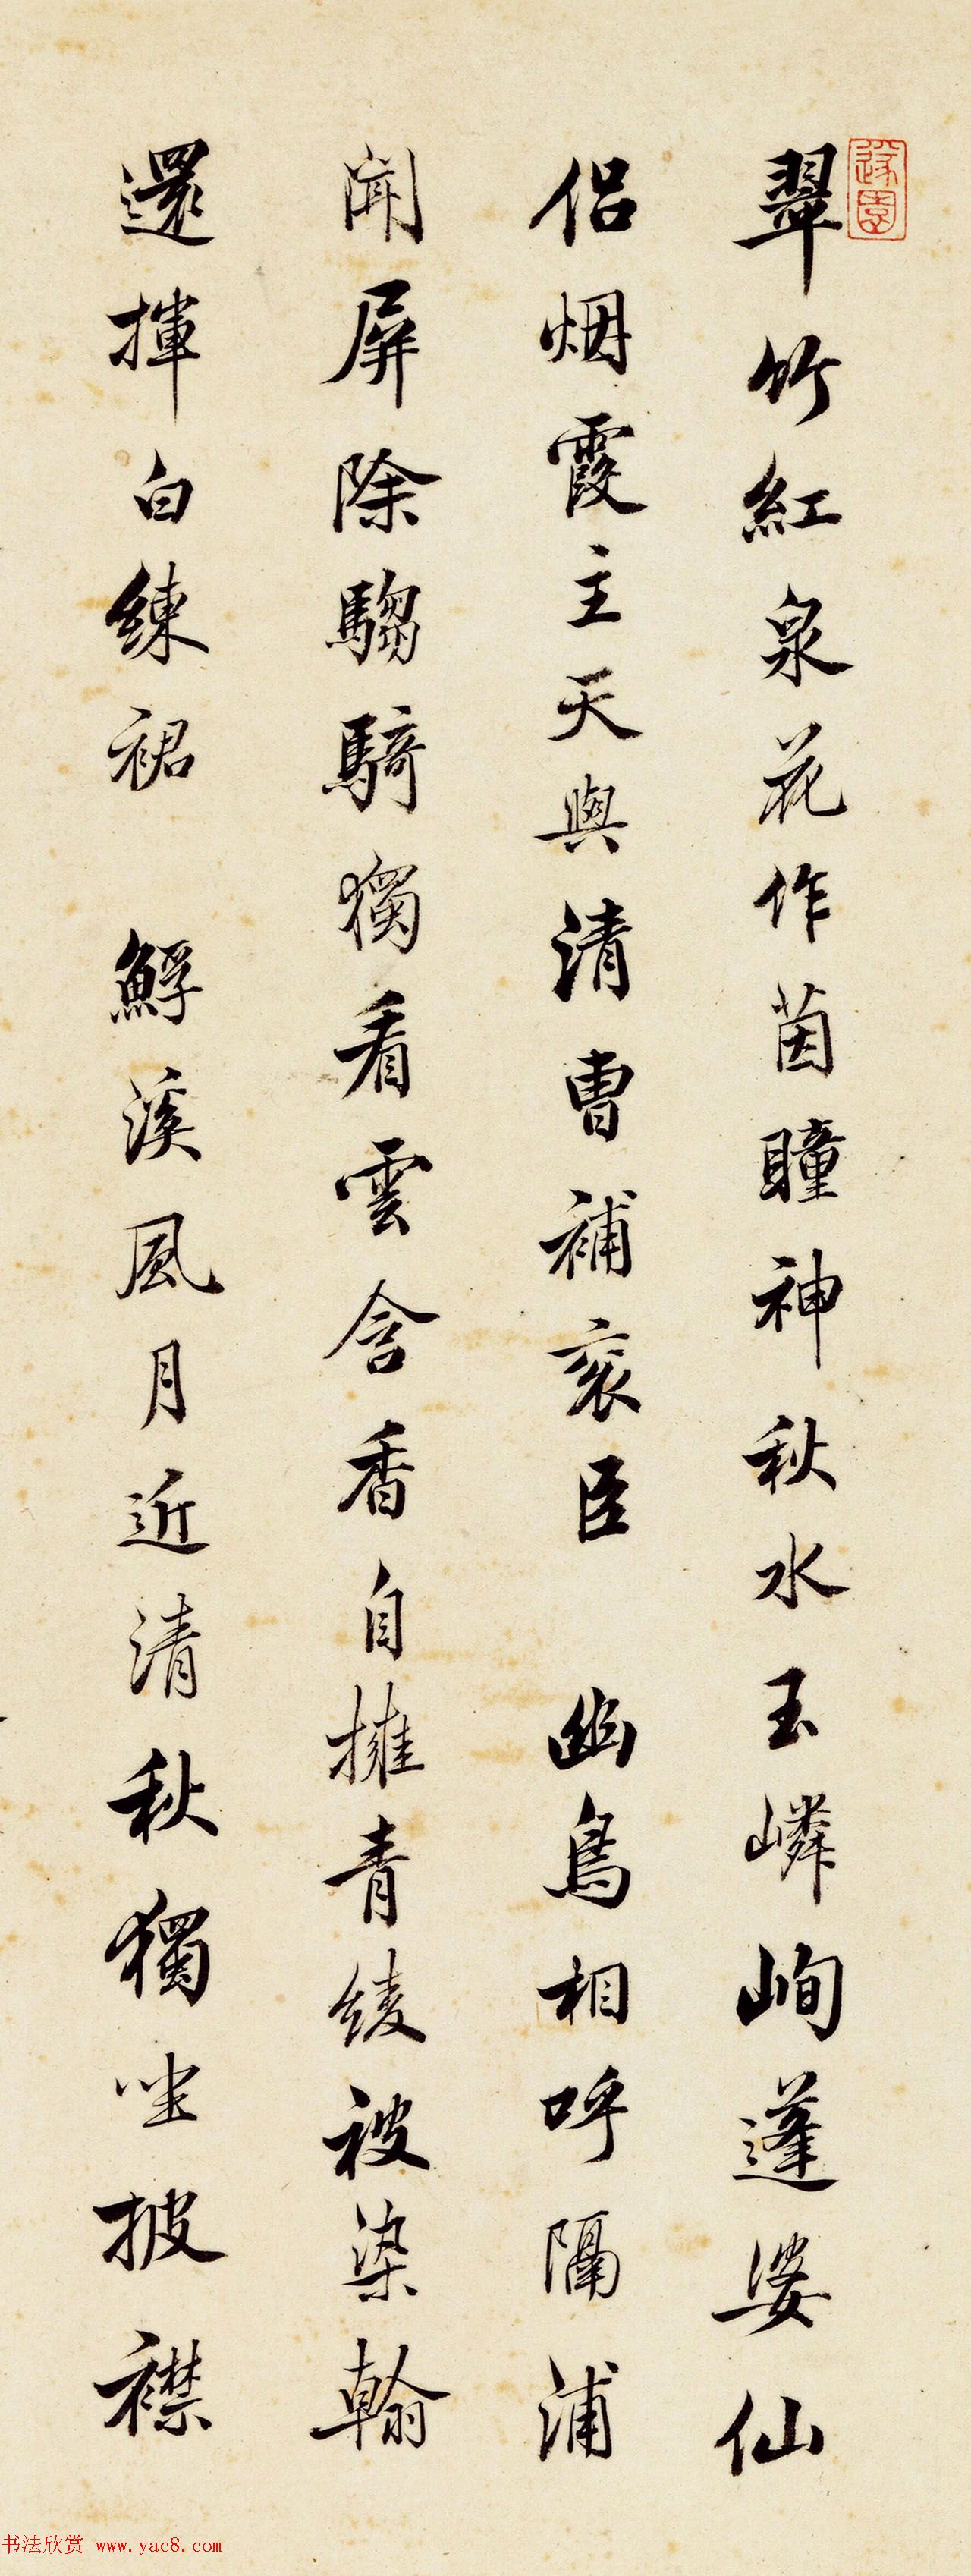 翠竹紅泉花作茵瞳神秋水玉嶙峋蓬婆仙
侣烟霞主天與清曹補衮臣 幽鳥相呼隔浦
聞屏除騶騎獨看雲含香自擁青綾被染翰
還揮白練裙 鮮溪風月近清秋獨坐披襟
書法欣赏 www.yac8.com